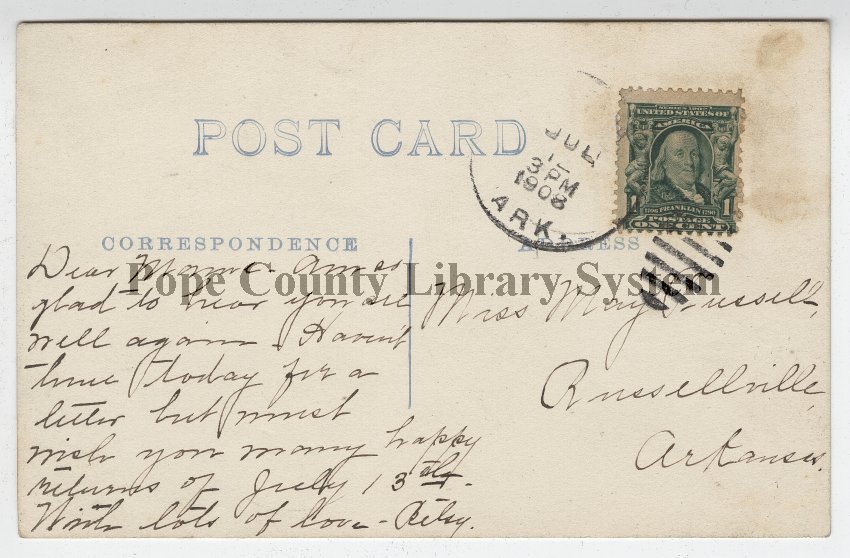 POST CARD
JUL
3 PM
1908
ARK.
SERIES 1902
UNITED STATES OF
AMERICA
1 1
1706 FRANKLIN 1790
POSTAGE
ONE CENT
CORRESPONDENCE
ADDRESS
Pope County Library System
Dear Mame - Am so
glad to hear you are
well again - Haven't
time today for a
letter but must
wish you many happy
returns of July 13th.
With lots of love - Betsy.
Miss May Russell,
Russellville,
Arkansas.